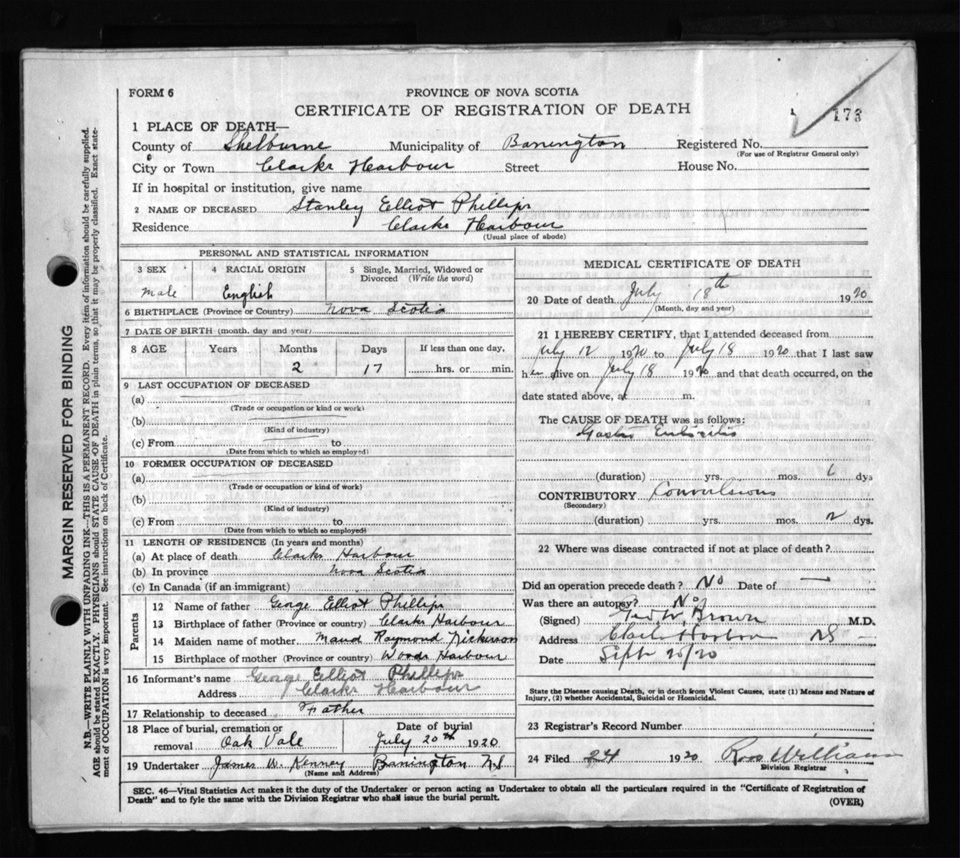 FORM 6
PROVINCE OF NOVA SCOTIA
CERTIFICATE OF REGISTRATION OF DEATH
173
1 PLACE OF DEATH—
County of Shelburne Municipality of Barrington Registered No.
(For use of Registrar General only)
City or Town Clarks Harbour Street House No.
If in hospital or institution, give name
2 NAME OF DECEASED Stanley Elliot Phillips
Residence Clarks Harbour
(Usual place of abode)
PERSONAL AND STATISTICAL INFORMATION
3 SEX 4 RACIAL ORIGIN 5 Single, Married, Widowed or Divorced (Write the word)
male English
6 BIRTHPLACE (Province or Country) Nova Scotia
7 DATE OF BIRTH (month, day and year)
8 AGE Years Months Days If less than one day,
2 17 hrs. or min.
9 LAST OCCUPATION OF DECEASED
(a)
(Trade or occupation or kind or work)
(b)
(Kind of industry)
(c) From to
(Date from which to which so employed)
10 FORMER OCCUPATION OF DECEASED
(a)
(Trade or occupation or kind of work)
(b)
(Kind of industry)
(c) From to
(Date from which to which so employed)
11 LENGTH OF RESIDENCE (In years and months)
(a) At place of death Clarks Harbour
(b) In province Nova Scotia
(c) In Canada (if an immigrant)
Parents
12 Name of father George Elliot Phillips
13 Birthplace of father (Province or country) Clarks Harbour
14 Maiden name of mother Maud Raymond Nickerson
15 Birthplace of mother (Province or country) Woods Harbour
16 Informant's name George Elliot Phillips
Address Clarks Harbour
17 Relationship to deceased Father
18 Place of burial, cremation or removal Oak Vale
Date of burial
July 20th 1920
19 Undertaker James W. Kenney Barrington NS
(Name and Address)
MEDICAL CERTIFICATE OF DEATH
20 Date of death July 18th 1920
(Month, day and year)
21 I HEREBY CERTIFY, that I attended deceased from
July 12 1920 to July 18 1920 that I last saw
alive on July 18 1920 and that death occurred, on the
date stated above, at m.
The CAUSE OF DEATH was as follows:
Gastro Enteritis
(duration) yrs. mos. 6 dys
CONTRIBUTORY Convulsions
(Secondary)
(duration) yrs. mos. 2 dys.
22 Where was disease contracted if not at place of death?
Did an operation precede death? No Date of —
Was there an autopsy? No
(Signed) Brown M.D.
Address Clarks Harbour NS
Date Sept 20/20
State the Disease causing Death, or in death from Violent Causes, state (1) Means and Nature of
Injury, and (2) whether Accidental, Suicidal or Homicidal.
23 Registrar's Record Number
24 Filed 24 1920 Ross Williams
Division Registrar
SEC. 46—Vital Statistics Act makes it the duty of the Undertaker or person acting as Undertaker to obtain all the particulars required in the "Certificate of Registration of
Death" and to fyle the same with the Division Registrar who shall issue the burial permit.
(OVER)
MARGIN RESERVED FOR BINDING
N.B.—WRITE PLAINLY WITH UNFADING INK—THIS IS A PERMANENT RECORD. Every item of information should be carefully supplied.
AGE should be stated EXACTLY. PHYSICIANS should STATE CAUSE OF DEATH in plain terms, so that it may be properly classified. Exact state-
ment of OCCUPATION is very important. See instructions on back of Certificate.